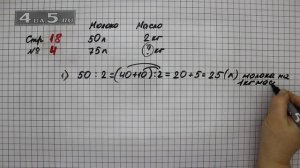 4 ALL 5.RU
Молоко Масло
Стр 18 50л 2 кг
№ 4 75л ? кг
1) 50 : 2 = (40+10) : 2 = 20 + 5 = 25 (л) молока на
1 кг масл